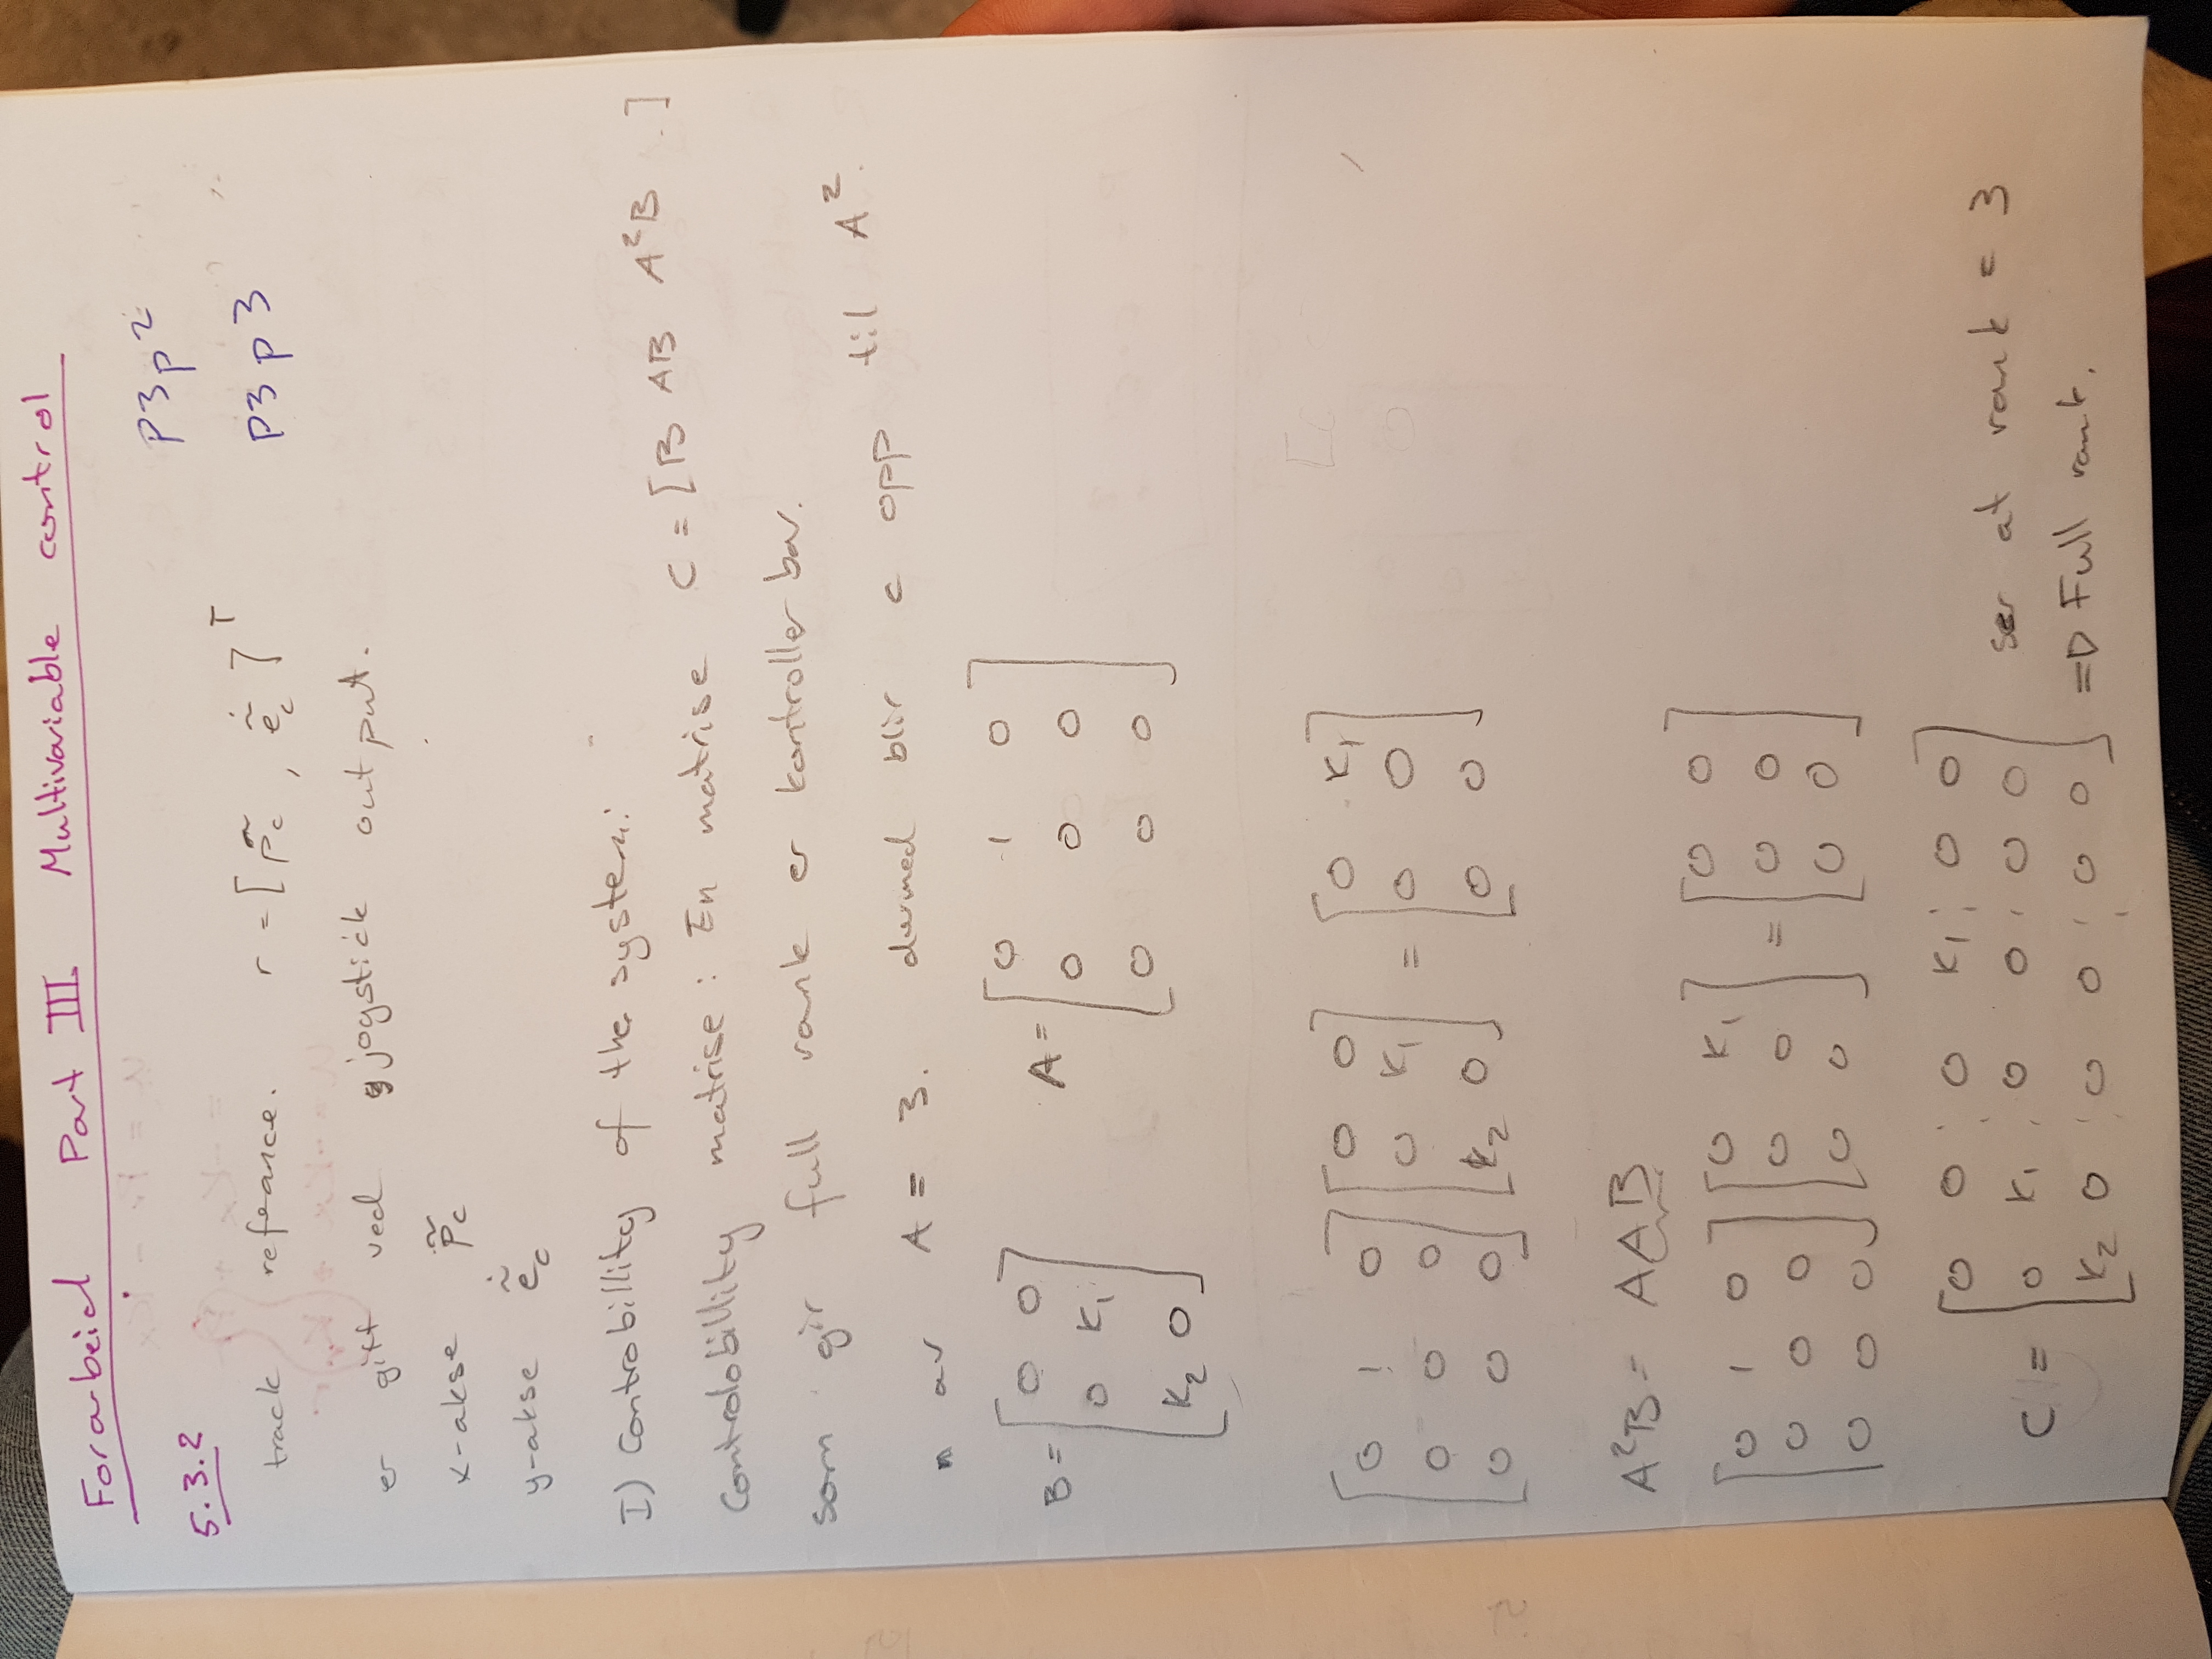 Forarbeid Part III Multivariable control
P3p2
5.3.2
track refeance. r = [ p̃c , ẽ̇c ]ᵀ P3p3
er gitt ved joystick output.
x-akse p̃c
y-akse ẽ̇c
I) Controbillity of the system:
Controlobillity matrise : En matrise C = [B AB A²B .]
som gir full rank er kontroller bar.
n av A = 3. dermed blir C opp til A².
B = [0 0; 0 K₁; K₂ 0] A = [0 1 0; 0 0 0; 0 0 0]
[0 1 0; 0 0 0; 0 0 0] [0 0; 0 K₁; K₂ 0] = [0 K₁; 0 0; 0 0]
A²B = AAB
[0 1 0; 0 0 0; 0 0 0] [0 K₁; 0 0; 0 0] = [0 0; 0 0; 0 0]
C = [0 0 ¦ 0 K₁ ¦ 0 0; 0 K₁ ¦ 0 0 ¦ 0 0; K₂ 0 ¦ 0 0 ¦ 0 0] ser at rank = 3
=D Full rank.